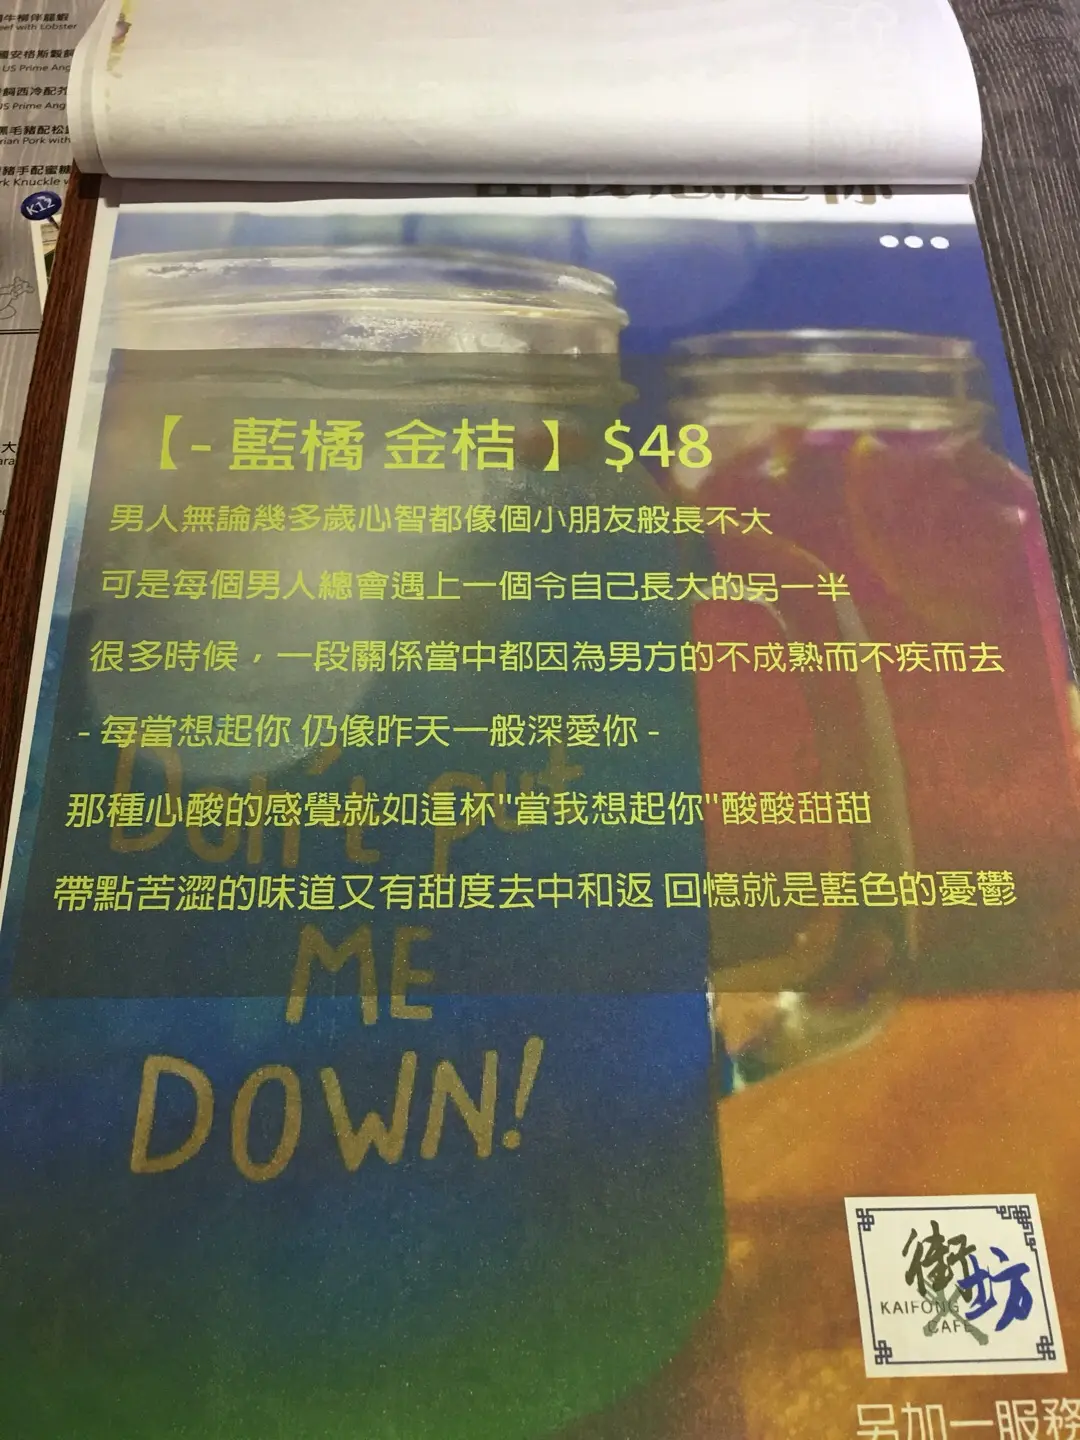 牛柳伴龍蝦
eef with Lobster
US Prime Ang
US Prime Ang
黑毛豬配松
rian Pork with
豬手配蜜糖
rk Knuckle
K12
●●●
【- 藍橘 金桔 】 $48
男人無論幾多歲心智都像個小朋友般長不大
可是每個男人總會遇上一個令自己長大的另一半
很多時候，一段關係當中都因為男方的不成熟而不疾而去
- 每當想起你 仍像昨天一般深愛你 -
那種心酸的感覺就如這杯"當我想起你"酸酸甜甜
帶點苦澀的味道又有甜度去中和返 回憶就是藍色的憂鬱
Don't put
ME
DOWN!
街坊
KAIFONG
CAFE
另加一服務